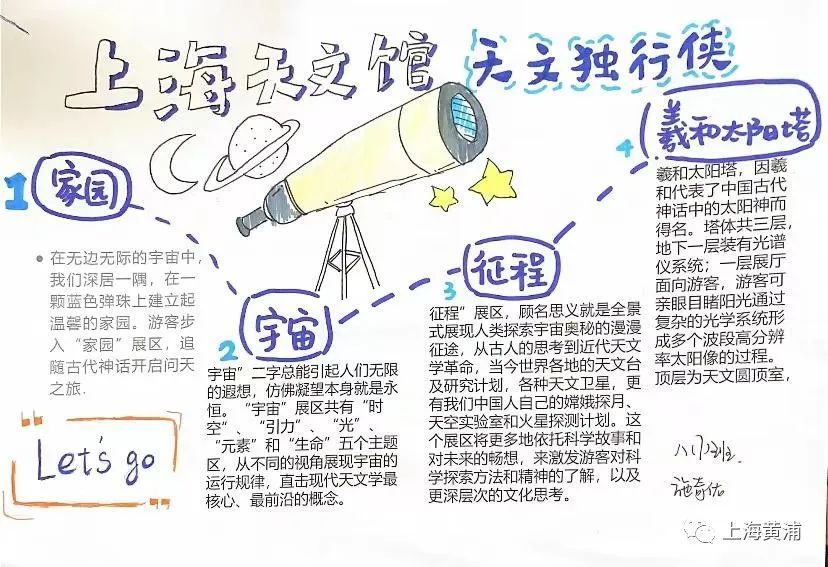 上海天文馆 天文独行侠
1 家园
在无边无际的宇宙中，
我们深居一隅，在一
颗蓝色弹珠上建立起
温馨的家园。游客步
入“家园”展区，追
随古代神话开启问天
之旅.
Let's go
2 宇宙
宇宙”二字总能引起人们无限
的遐想，仿佛凝望本身就是永
恒。“宇宙”展区共有“时
空”、“引力”、“光”、
“元素”和“生命”五个主题
区，从不同的视角展现宇宙的
运行规律，直击现代天文学最
核心、最前沿的概念。
3 征程
征程”展区，顾名思义就是全景
式展现人类探索宇宙奥秘的漫漫
征途，从古人的思考到近代天文
学革命，当今世界各地的天文台
及研究计划，各种天文卫星，更
有我们中国人自己的嫦娥探月、
天空实验室和火星探测计划。这
个展区将更多地依托科学故事和
对未来的畅想，来激发游客对科
学探索方法和精神的了解，以及
更深层次的文化思考。
4 羲和太阳塔
羲和太阳塔，因羲
和代表了中国古代
神话中的太阳神而
得名。塔体共三层，
地下一层装有光谱
仪系统；一层展厅
面向游客，游客可
亲眼目睹阳光通过
复杂的光学系统形
成多个波段高分辨
率太阳像的过程。
顶层为天文圆顶室，
上海黄浦